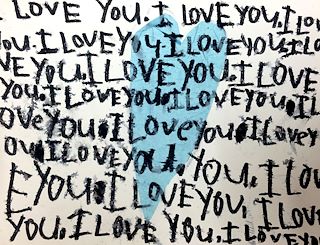 I LOVE YOU. I LOVE YOU. I LO
YOU. I LOVE YOU I LOVE YOU I LO
EYOU. I LOVE YOU. I LOVE
YOU. I LOVE YOU. I LOVE YOU. I L
OVE YOU. I LOVE YOU. I LOVEY
OU. I LOVE YOU. YOU. I LOV
EYOU. I LOVE YOU. I LOV
YOU. I LOVE YOU. I LOVE YOU